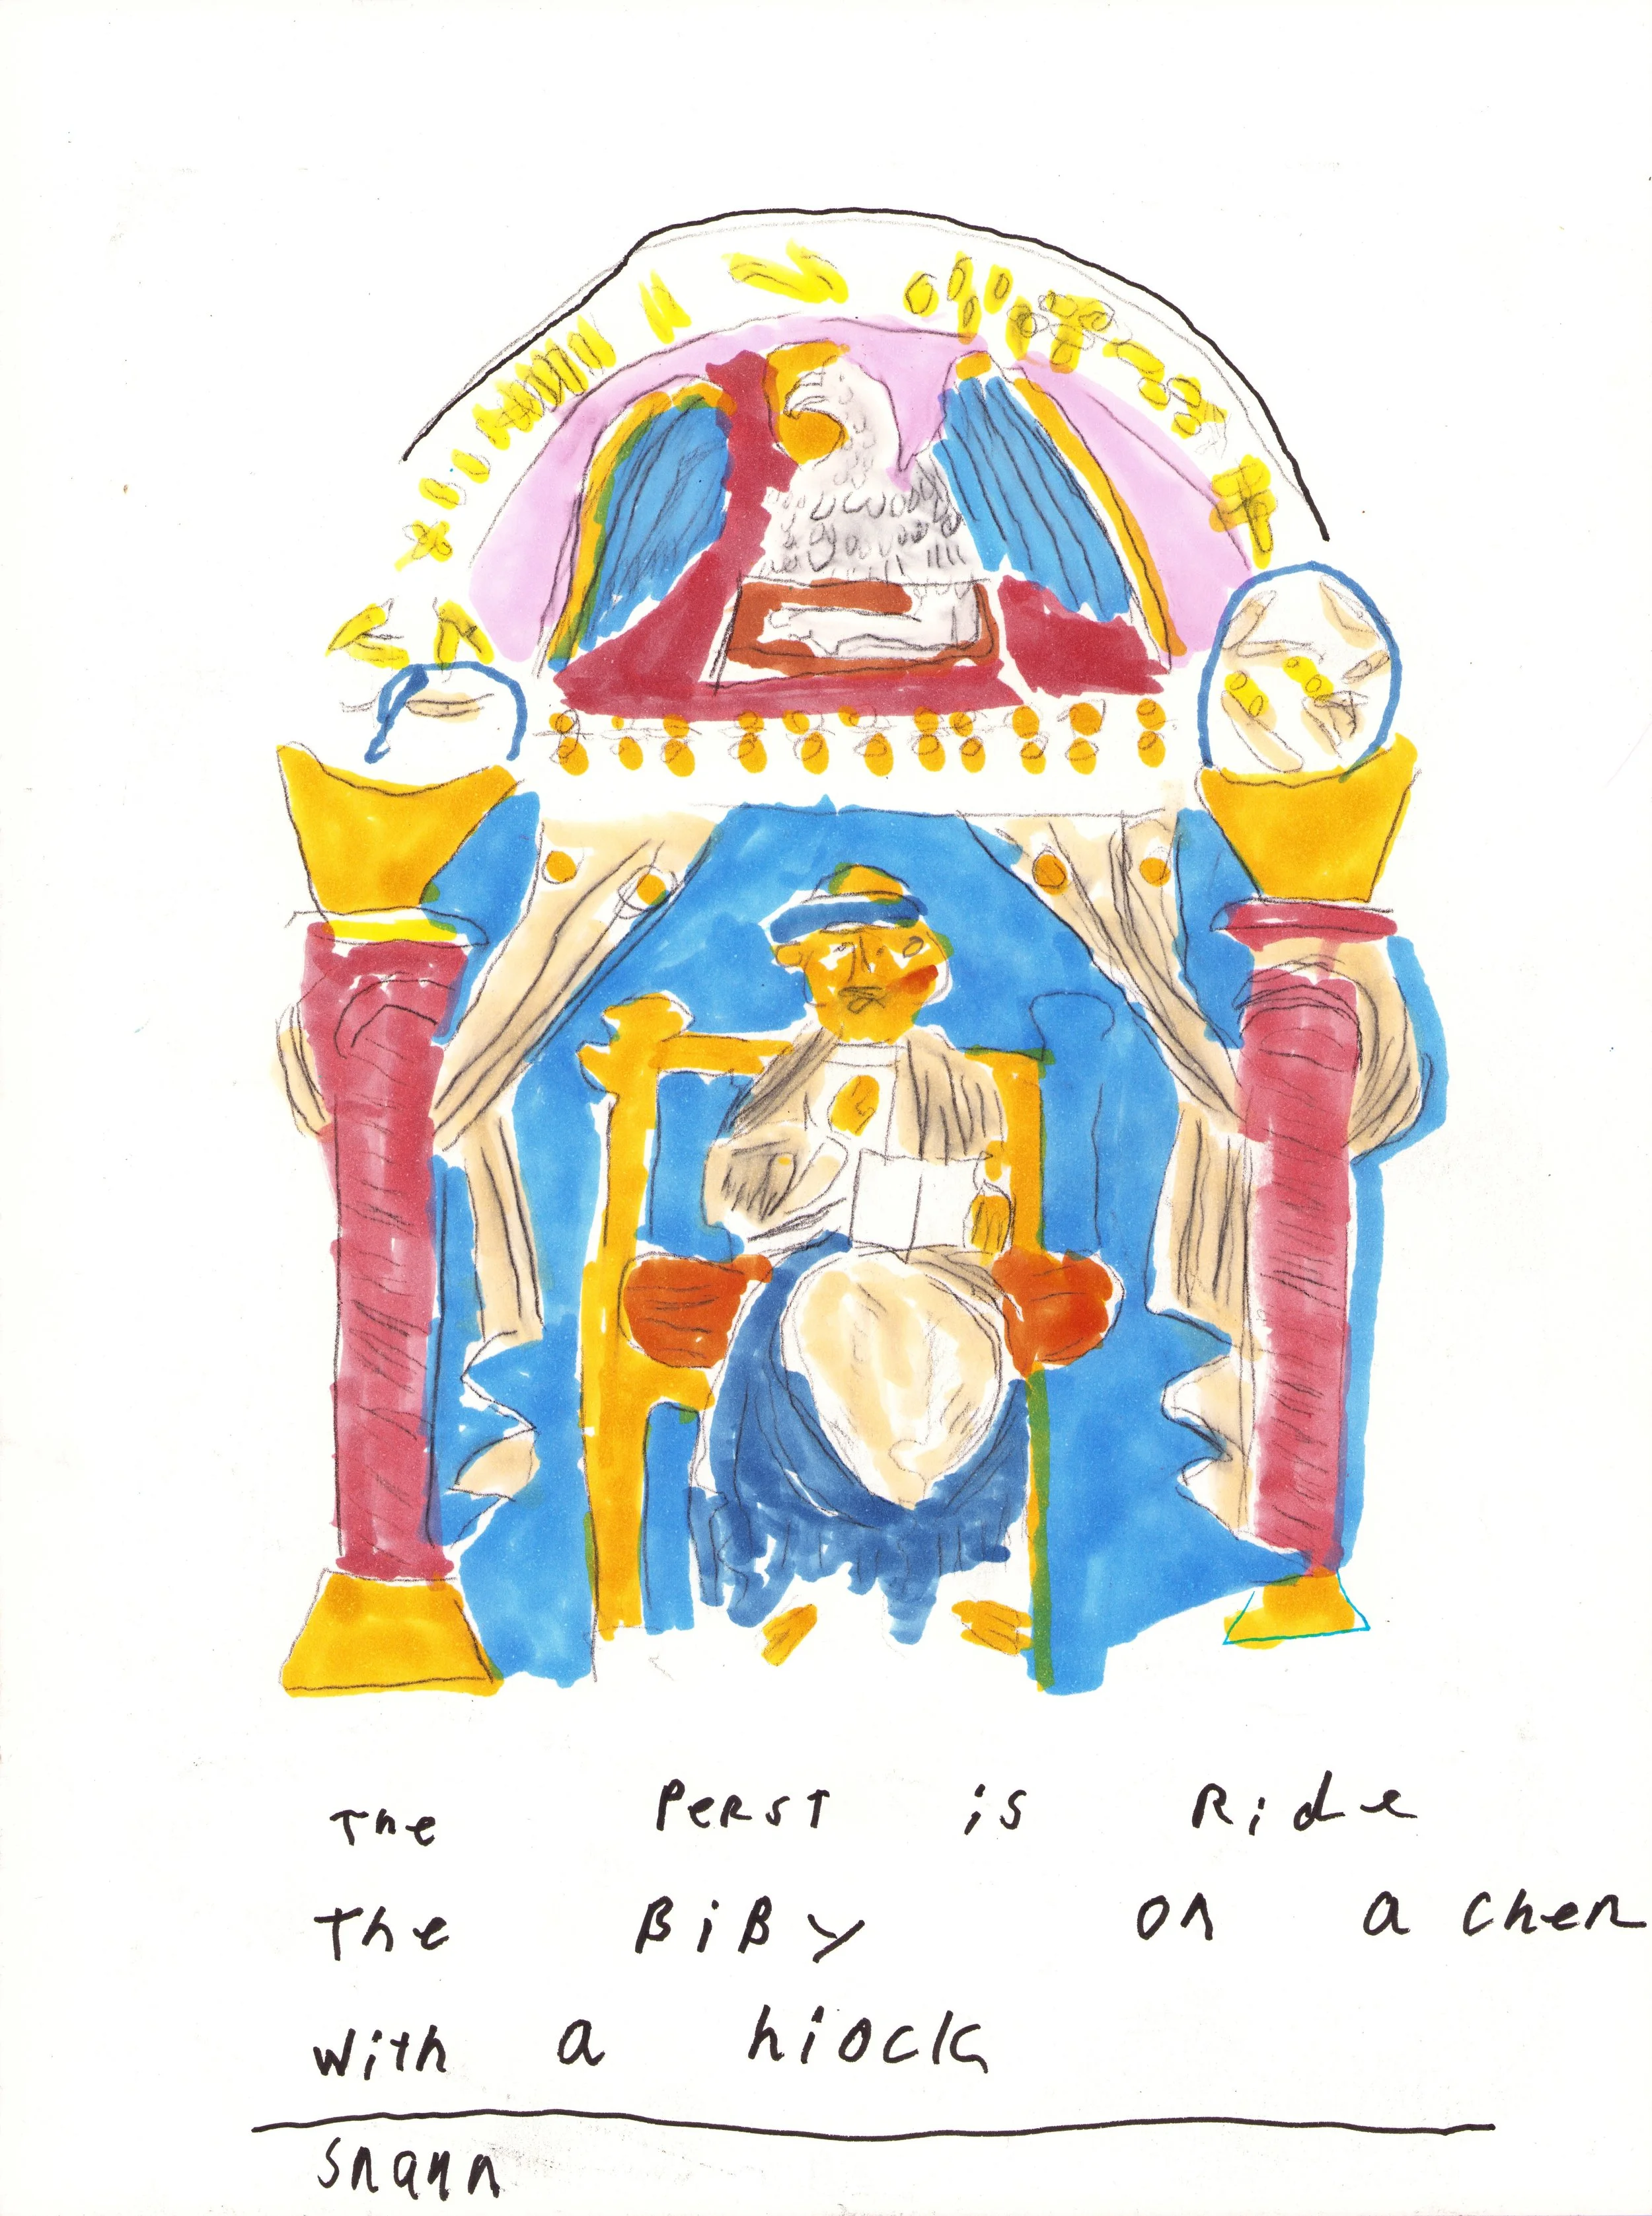 The Perst is Ride
The BiBy on a cher
with a hiock
Snann